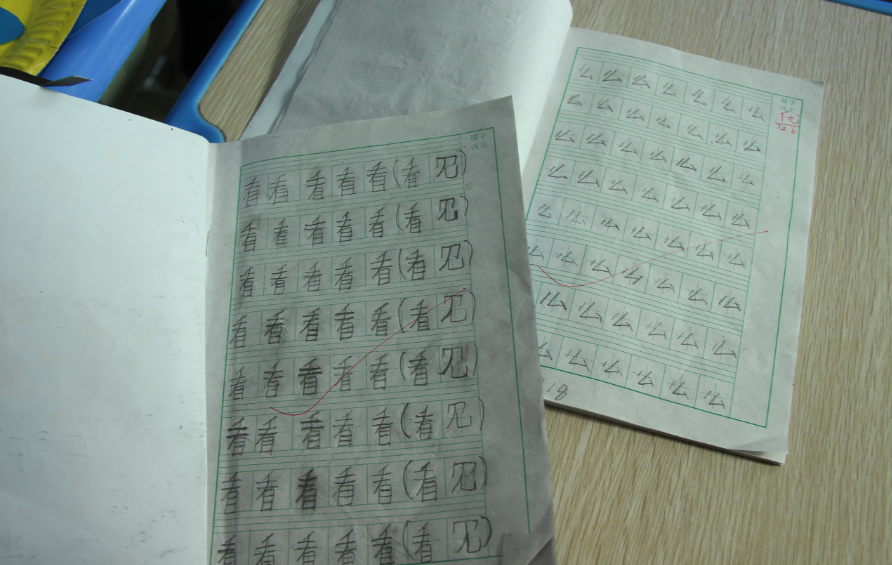 看看看看看(看见)
看看看看看(看见)
看看看看看(看见)
看看看看看(看见)
看看看看看(看见)
看看看看看(看见)
看看看看看(看见)
看看看看看(看见)
么么么么么么么
么么么么么么么
么么么么么么么
么么么么么么么
么么么么么么么
么么么么么么么
么么么么么么
么么么么么么
18